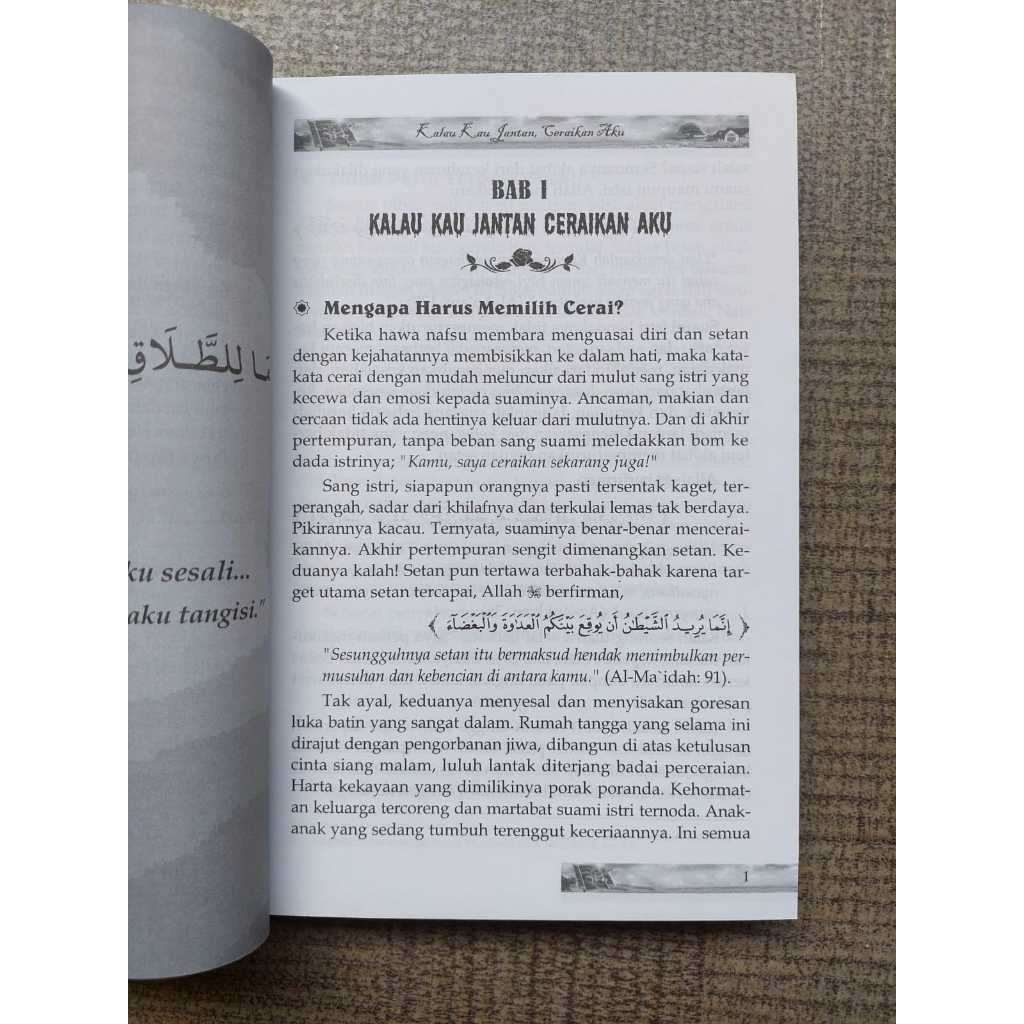 مَا لِلطَّلَاقِ
ku sesali...
aku tangisi."
Kalau Kau Jantan, Ceraikan Aku
BAB I
KALAU KAU JANTAN CERAIKAN AKU
Mengapa Harus Memilih Cerai?
Ketika hawa nafsu membara menguasai diri dan setan
dengan kejahatannya membisikkan ke dalam hati, maka kata-
kata cerai dengan mudah meluncur dari mulut sang istri yang
kecewa dan emosi kepada suaminya. Ancaman, makian dan
cercaan tidak ada hentinya keluar dari mulutnya. Dan di akhir
pertempuran, tanpa beban sang suami meledakkan bom ke
dada istrinya; "Kamu, saya ceraikan sekarang juga!"
Sang istri, siapapun orangnya pasti tersentak kaget, ter-
perangah, sadar dari khilafnya dan terkulai lemas tak berdaya.
Pikirannya kacau. Ternyata, suaminya benar-benar mencerai-
kannya. Akhir pertempuran sengit dimenangkan setan. Ke-
duanya kalah! Setan pun tertawa terbahak-bahak karena tar-
get utama setan tercapai, Allah ﷻ berfirman,
﴿ إِنَّمَا يُرِيدُ ٱلشَّيْطَٰنُ أَن يُوقِعَ بَيْنَكُمُ ٱلْعَدَٰوَةَ وَٱلْبَغْضَآءَ ﴾
"Sesungguhnya setan itu bermaksud hendak menimbulkan per-
musuhan dan kebencian di antara kamu." (Al-Ma`idah: 91).
Tak ayal, keduanya menyesal dan menyisakan goresan
luka batin yang sangat dalam. Rumah tangga yang selama ini
dirajut dengan pengorbanan jiwa, dibangun di atas ketulusan
cinta siang malam, luluh lantak diterjang badai perceraian.
Harta kekayaan yang dimilikinya porak poranda. Kehormat-
an keluarga tercoreng dan martabat suami istri ternoda. Anak-
anak yang sedang tumbuh terenggut keceriaannya. Ini semua
1